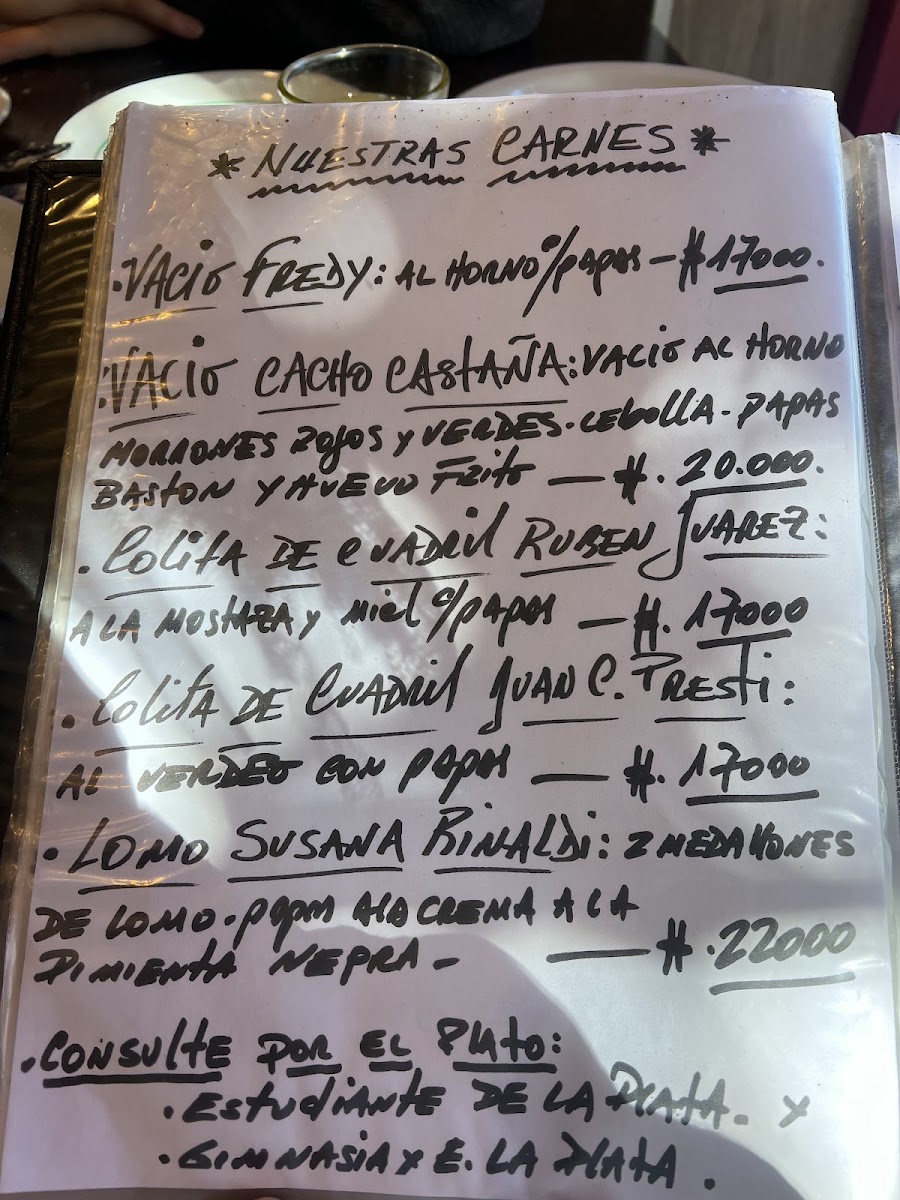 * NUESTRAS CARNES *
· VACIO FREDY: AL HORNO C/PAPAS — $ 17000.
· VACIO CACHO CASTAÑA: VACIO AL HORNO
MORRONES ROJOS Y VERDES. CEBOLLA. PAPAS
BASTON Y HUEVO FRITO — $. 20.000.
· COLITA DE CUADRIL RUBEN JUAREZ:
A LA MOSTAZA Y MIEL C/PAPAS — $. 17000
· COLITA DE CUADRIL JUAN C. PRESTI:
AL VERDEO CON PAPAS — $. 17000
· LOMO SUSANA RINALDI: 2 MEDALLONES
DE LOMO. PAPAS A LA CREMA A LA
PIMIENTA NEGRA — $. 22000
· CONSULTE POR EL PLATO:
· ESTUDIANTE DE LA PLATA. Y
· GIMNASIA Y E. LA PLATA.